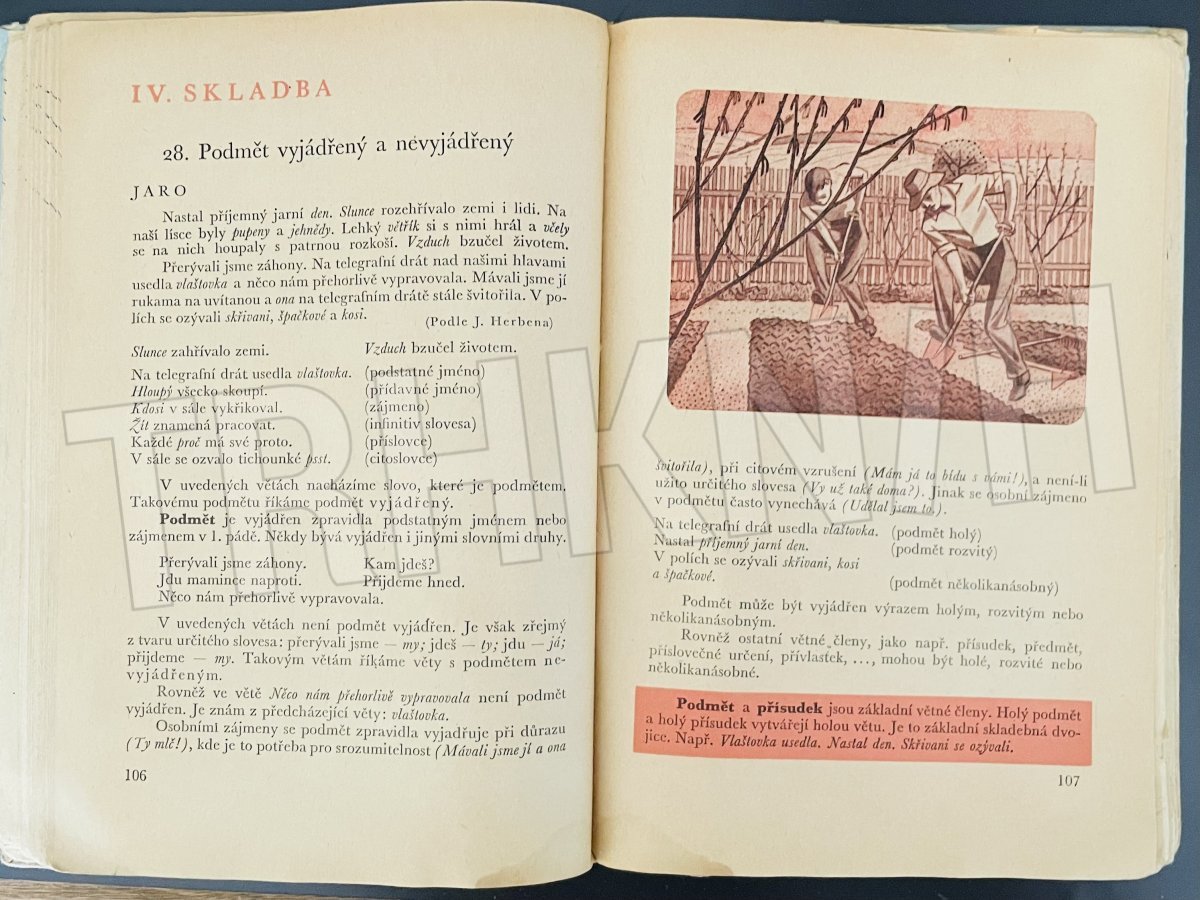 IV. SKLADBA
28. Podmět vyjádřený a nevyjádřený
JARO
Nastal příjemný jarní den. Slunce rozehřívalo zemi i lidi. Na
naší lísce byly pupeny a jehnědy. Lehký větřík si s nimi hrál a včely
se na nich houpaly s patrnou rozkoší. Vzduch bzučel životem.
Přerývali jsme záhony. Na telegrafní drát nad našimi hlavami
usedla vlaštovka a něco nám přehorlivě vypravovala. Mávali jsme jí
rukama na uvítanou a ona na telegrafním drátě stále švitořila. V po-
lích se ozývali skřivani, špačkové a kosi.
(Podle J. Herbena)
Slunce zahřívalo zemi. Vzduch bzučel životem.
Na telegrafní drát usedla vlaštovka. (podstatné jméno)
Hloupý všecko skoupí. (přídavné jméno)
Kdosi v sále vykřikoval. (zájmeno)
Žít znamená pracovat. (infinitiv slovesa)
Každé proč má své proto. (příslovce)
V sále se ozvalo tichounké psst. (citoslovce)
V uvedených větách nacházíme slovo, které je podmětem.
Takovému podmětu říkáme podmět vyjádřený.
Podmět je vyjádřen zpravidla podstatným jménem nebo
zájmenem v 1. pádě. Někdy bývá vyjádřen i jinými slovními druhy.
Přerývali jsme záhony. Kam jdeš?
Jdu mamince naproti. Přijdeme hned.
Něco nám přehorlivě vypravovala.
V uvedených větách není podmět vyjádřen. Je však zřejmý
z tvaru určitého slovesa: přerývali jsme — my; jdeš — ty; jdu — já;
přijdeme — my. Takovým větám říkáme věty s podmětem ne-
vyjádřeným.
Rovněž ve větě Něco nám přehorlivě vypravovala není podmět
vyjádřen. Je znám z předcházející věty: vlaštovka.
Osobními zájmeny se podmět zpravidla vyjadřuje při důrazu
(Ty mlč!), kde je to potřeba pro srozumitelnost (Mávali jsme jí a ona
106
švitořila), při citovém vzrušení (Mám já to bídu s vámi!), a není-li
užito určitého slovesa (Vy už také doma?). Jinak se osobní zájmeno
v podmětu často vynechává (Udělal jsem to.).
Na telegrafní drát usedla vlaštovka. (podmět holý)
Nastal příjemný jarní den. (podmět rozvitý)
V polích se ozývali skřivani, kosi
a špačkové. (podmět několikanásobný)
Podmět může být vyjádřen výrazem holým, rozvitým nebo
několikanásobným.
Rovněž ostatní větné členy, jako např. přísudek, předmět,
příslovečné určení, přívlastek, ..., mohou být holé, rozvité nebo
několikanásobné.
Podmět a přísudek jsou základní větné členy. Holý podmět
a holý přísudek vytvářejí holou větu. Je to základní skladebná dvo-
jice. Např. Vlaštovka usedla. Nastal den. Skřivani se ozývali.
107
TRHKNIH